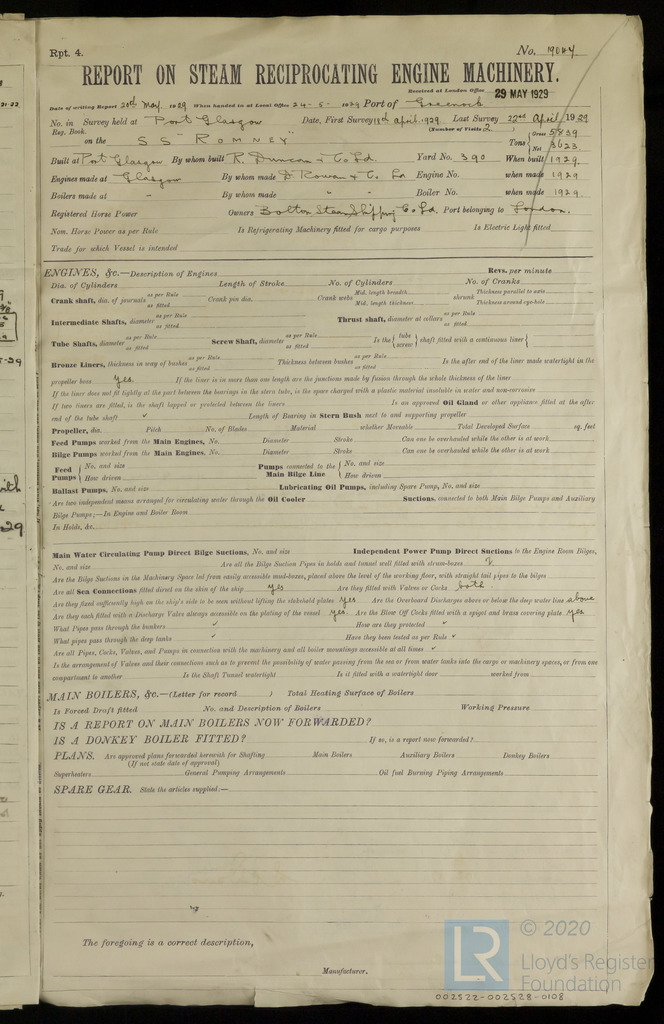 Rpt. 4.
No. 19044
REPORT ON STEAM RECIPROCATING ENGINE MACHINERY.
Received at London Office 29 MAY 1929
Date of writing Report 23rd May 1929 When handed in at Local Office 24-5-1929 Port of Greenock
No. in Survey held at Port Glasgow Date, First Survey 11th April 1929 Last Survey 22nd April 1929
Reg. Book. (Number of Visits 2.)
on the SS "ROMNEY" Tons { Gross 5839 Net 3623
Built at Port Glasgow By whom built R. Duncan & Co Ld. Yard No. 390 When built 1929.
Engines made at Glasgow By whom made D. Rowan & Co. Ld Engine No. when made 1929
Boilers made at " By whom made " " Boiler No. when made 1929.
Registered Horse Power Owners Bolton Steam Shipping Co. Ld. Port belonging to London.
Nom. Horse Power as per Rule Is Refrigerating Machinery fitted for cargo purposes Is Electric Light fitted
Trade for which Vessel is intended
ENGINES, &c.—Description of Engines Revs. per minute
Dia. of Cylinders Length of Stroke No. of Cylinders No. of Cranks
Crank shaft, dia. of journals as per Rule as fitted Crank pin dia. Crank webs Mid. length breadth Mid. length thickness shrunk Thickness parallel to axis Thickness around eye-hole
Intermediate Shafts, diameter as per Rule as fitted Thrust shaft, diameter at collars as per Rule as fitted
Tube Shafts, diameter as per Rule as fitted Screw Shaft, diameter as per Rule as fitted Is the { tube screw } shaft fitted with a continuous liner {
Bronze Liners, thickness in way of bushes as per Rule as fitted Thickness between bushes as per Rule as fitted Is the after end of the liner made watertight in the
propeller boss yes If the liner is in more than one length are the junctions made by fusion through the whole thickness of the liner
If the liner does not fit tightly at the part between the bearings in the stern tube, is the space charged with a plastic material insoluble in water and non-corrosive
If two liners are fitted, is the shaft lapped or protected between the liners Is an approved Oil Gland or other appliance fitted at the after
end of the tube shaft ✓ Length of Bearing in Stern Bush next to and supporting propeller
Propeller, dia. Pitch No. of Blades Material whether Moveable Total Developed Surface sq. feet
Feed Pumps worked from the Main Engines, No. Diameter Stroke Can one be overhauled while the other is at work
Bilge Pumps worked from the Main Engines, No. Diameter Stroke Can one be overhauled while the other is at work
Feed Pumps { No. and size How driven Pumps connected to the Main Bilge Line { No. and size How driven
Ballast Pumps, No. and size Lubricating Oil Pumps, including Spare Pump, No. and size
Are two independent means arranged for circulating water through the Oil Cooler Suctions, connected to both Main Bilge Pumps and Auxiliary
Bilge Pumps;—In Engine and Boiler Room
In Holds, &c.
Main Water Circulating Pump Direct Bilge Suctions, No. and size Independent Power Pump Direct Suctions to the Engine Room Bilges,
No. and size Are all the Bilge Suction Pipes in holds and tunnel well fitted with strum-boxes
Are the Bilge Suctions in the Machinery Space led from easily accessible mud-boxes, placed above the level of the working floor, with straight tail pipes to the bilges
Are all Sea Connections fitted direct on the skin of the ship yes Are they fitted with Valves or Cocks both
Are they fixed sufficiently high on the ship's side to be seen without lifting the stokehold plates yes Are the Overboard Discharges above or below the deep water line above
Are they each fitted with a Discharge Valve always accessible on the plating of the vessel yes. Are the Blow Off Cocks fitted with a spigot and brass covering plate yes
What Pipes pass through the bunkers ✓ How are they protected ✓
What pipes pass through the deep tanks ✓ Have they been tested as per Rule ✓
Are all Pipes, Cocks, Valves, and Pumps in connection with the machinery and all boiler mountings accessible at all times ✓
Is the arrangement of Valves and their connections such as to prevent the possibility of water passing from the sea or from water tanks into the cargo or machinery spaces, or from one
compartment to another Is the Shaft Tunnel watertight Is it fitted with a watertight door worked from
MAIN BOILERS, &c.—(Letter for record ) Total Heating Surface of Boilers
Is Forced Draft fitted No. and Description of Boilers Working Pressure
IS A REPORT ON MAIN BOILERS NOW FORWARDED?
IS A DONKEY BOILER FITTED? If so, is a report now forwarded?
PLANS. Are approved plans forwarded herewith for Shafting Main Boilers Auxiliary Boilers Donkey Boilers
(If not state date of approval)
Superheaters General Pumping Arrangements Oil fuel Burning Piping Arrangements
SPARE GEAR. State the articles supplied:—
The foregoing is a correct description,
Manufacturer.
LR © 2020
Lloyd's Register
Foundation
002522-002528-0108